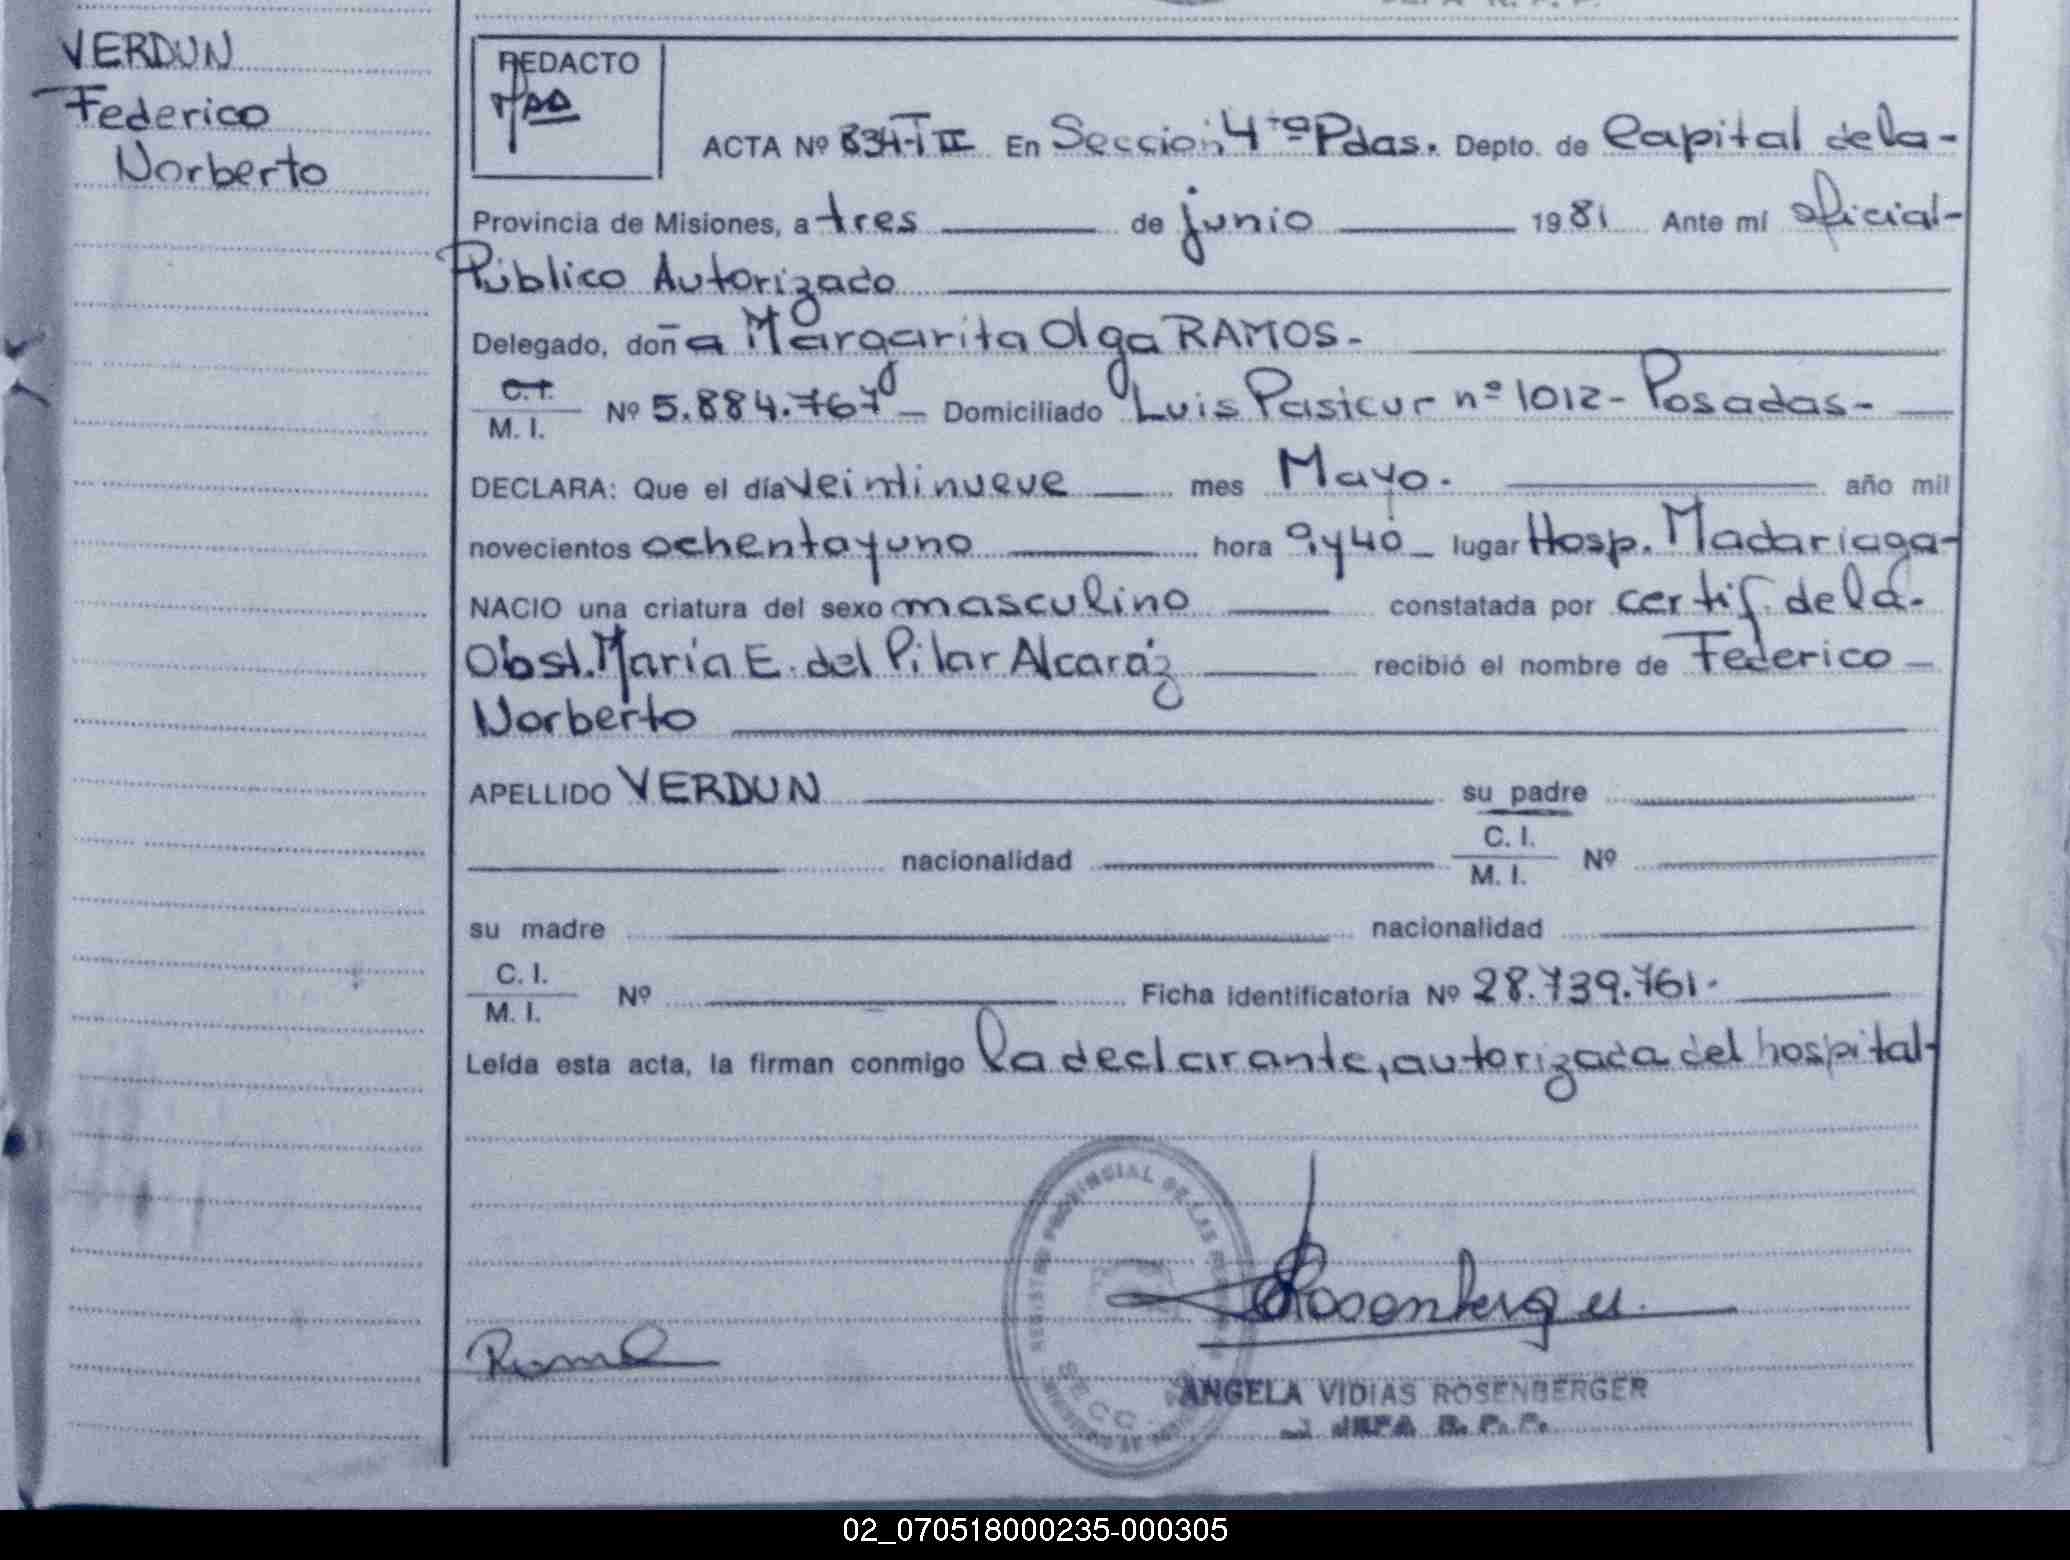 VERDUN
Federico
Norberto
REDACTO
ACTA Nº 834-T II En Sección 4ta Pdas. Depto. de Capital de la-
Provincia de Misiones, a tres de junio 1981 Ante mí oficial-
Público Autorizado
Delegado, doña Margarita Olga RAMOS.-
C.I. M. I. Nº 5.884.767 - Domiciliado Luis Pasteur nº 1012 - Posadas-
DECLARA: Que el día veintinueve mes Mayo. año mil
novecientos ochenta y uno hora 9 y 40 - lugar Hosp. Madariaga-
NACIO una criatura del sexo masculino constatada por certif. de la-
Obst. María E. del Pilar Alcaráz recibió el nombre de Federico
Norberto
APELLIDO VERDUN su padre
nacionalidad C. I. M. I. Nº
su madre nacionalidad
C. I. M. I. Nº Ficha identificatoria Nº 28.739.761.
Leída esta acta, la firman conmigo la declarante, autorizada del hospital-
REGISTRO PROVINCIAL DE LAS
SECC.
ANGELA VIDIAS ROSENBERGER
JEFA R. P. P.
02_070518000235-000305